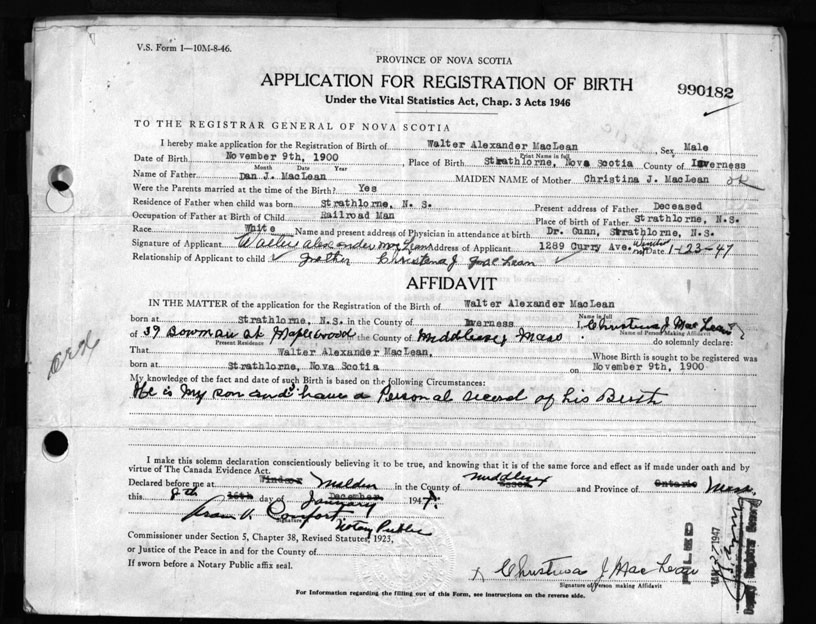 V.S. Form 1—10M-8-46.
PROVINCE OF NOVA SCOTIA
APPLICATION FOR REGISTRATION OF BIRTH
990182
Under the Vital Statistics Act, Chap. 3 Acts 1946
TO THE REGISTRAR GENERAL OF NOVA SCOTIA
I hereby make application for the Registration of Birth of Walter Alexander MacLean, Sex Male
Print Name in full
Date of Birth November 9th, 1900, Place of Birth Strathlorne, Nova Scotia County of Inverness
Month Date Year
Name of Father Dan J. MacLean MAIDEN NAME of Mother Christina J. MacLean ok
Were the Parents married at the time of Birth? Yes
Residence of Father when child was born Strathlorne, N. S. Present address of Father Deceased
Occupation of Father at Birth of Child Railroad Man Place of birth of Father Strathlorne, N.S.
Race White Name and present address of Physician in attendance at birth Dr. Gunn, Strathlorne, N.S.
Signature of Applicant Walter Alexander MacLean Address of Applicant 1289 Curry Ave. Windsor Ont Date 1-23-47
Relationship of Applicant to child Mother Christena J MacLean
AFFIDAVIT
IN THE MATTER of the application for the Registration of the Birth of Walter Alexander MacLean
Name in full
born at Strathlorne, N.S. in the County of Inverness I, Christena J MacLean
Name of Person Making Affidavit
of 39 Bowman St Maplewood the County of Middlesex Mass do solemnly declare:
Present Residence
That Walter Alexander MacLean, Whose Birth is sought to be registered was
born at Strathlorne, Nova Scotia on November 9th, 1900
My knowledge of the fact and date of such Birth is based on the following Circumstances:
He is My son and I have a Personal record of his Birth
I make this solemn declaration conscientiously believing it to be true, and knowing that it is of the same force and effect as if made under oath and by
virtue of The Canada Evidence Act.
Declared before me at Windsor Malden in the County of Essex Middlesex and Province of Ontario Mass.
this 16th 8th day of December January 1947.
Comfort
Signature
Notary Public
Commissioner under Section 5, Chapter 38, Revised Statutes, 1923,
or Justice of the Peace in and for the County of
If sworn before a Notary Public affix seal.
x Christena J MacLean
Signature of Person making Affidavit
For Information regarding the filling out of this Form, see instructions on the reverse side.
FILED
27 1947
Deputy Registrar General